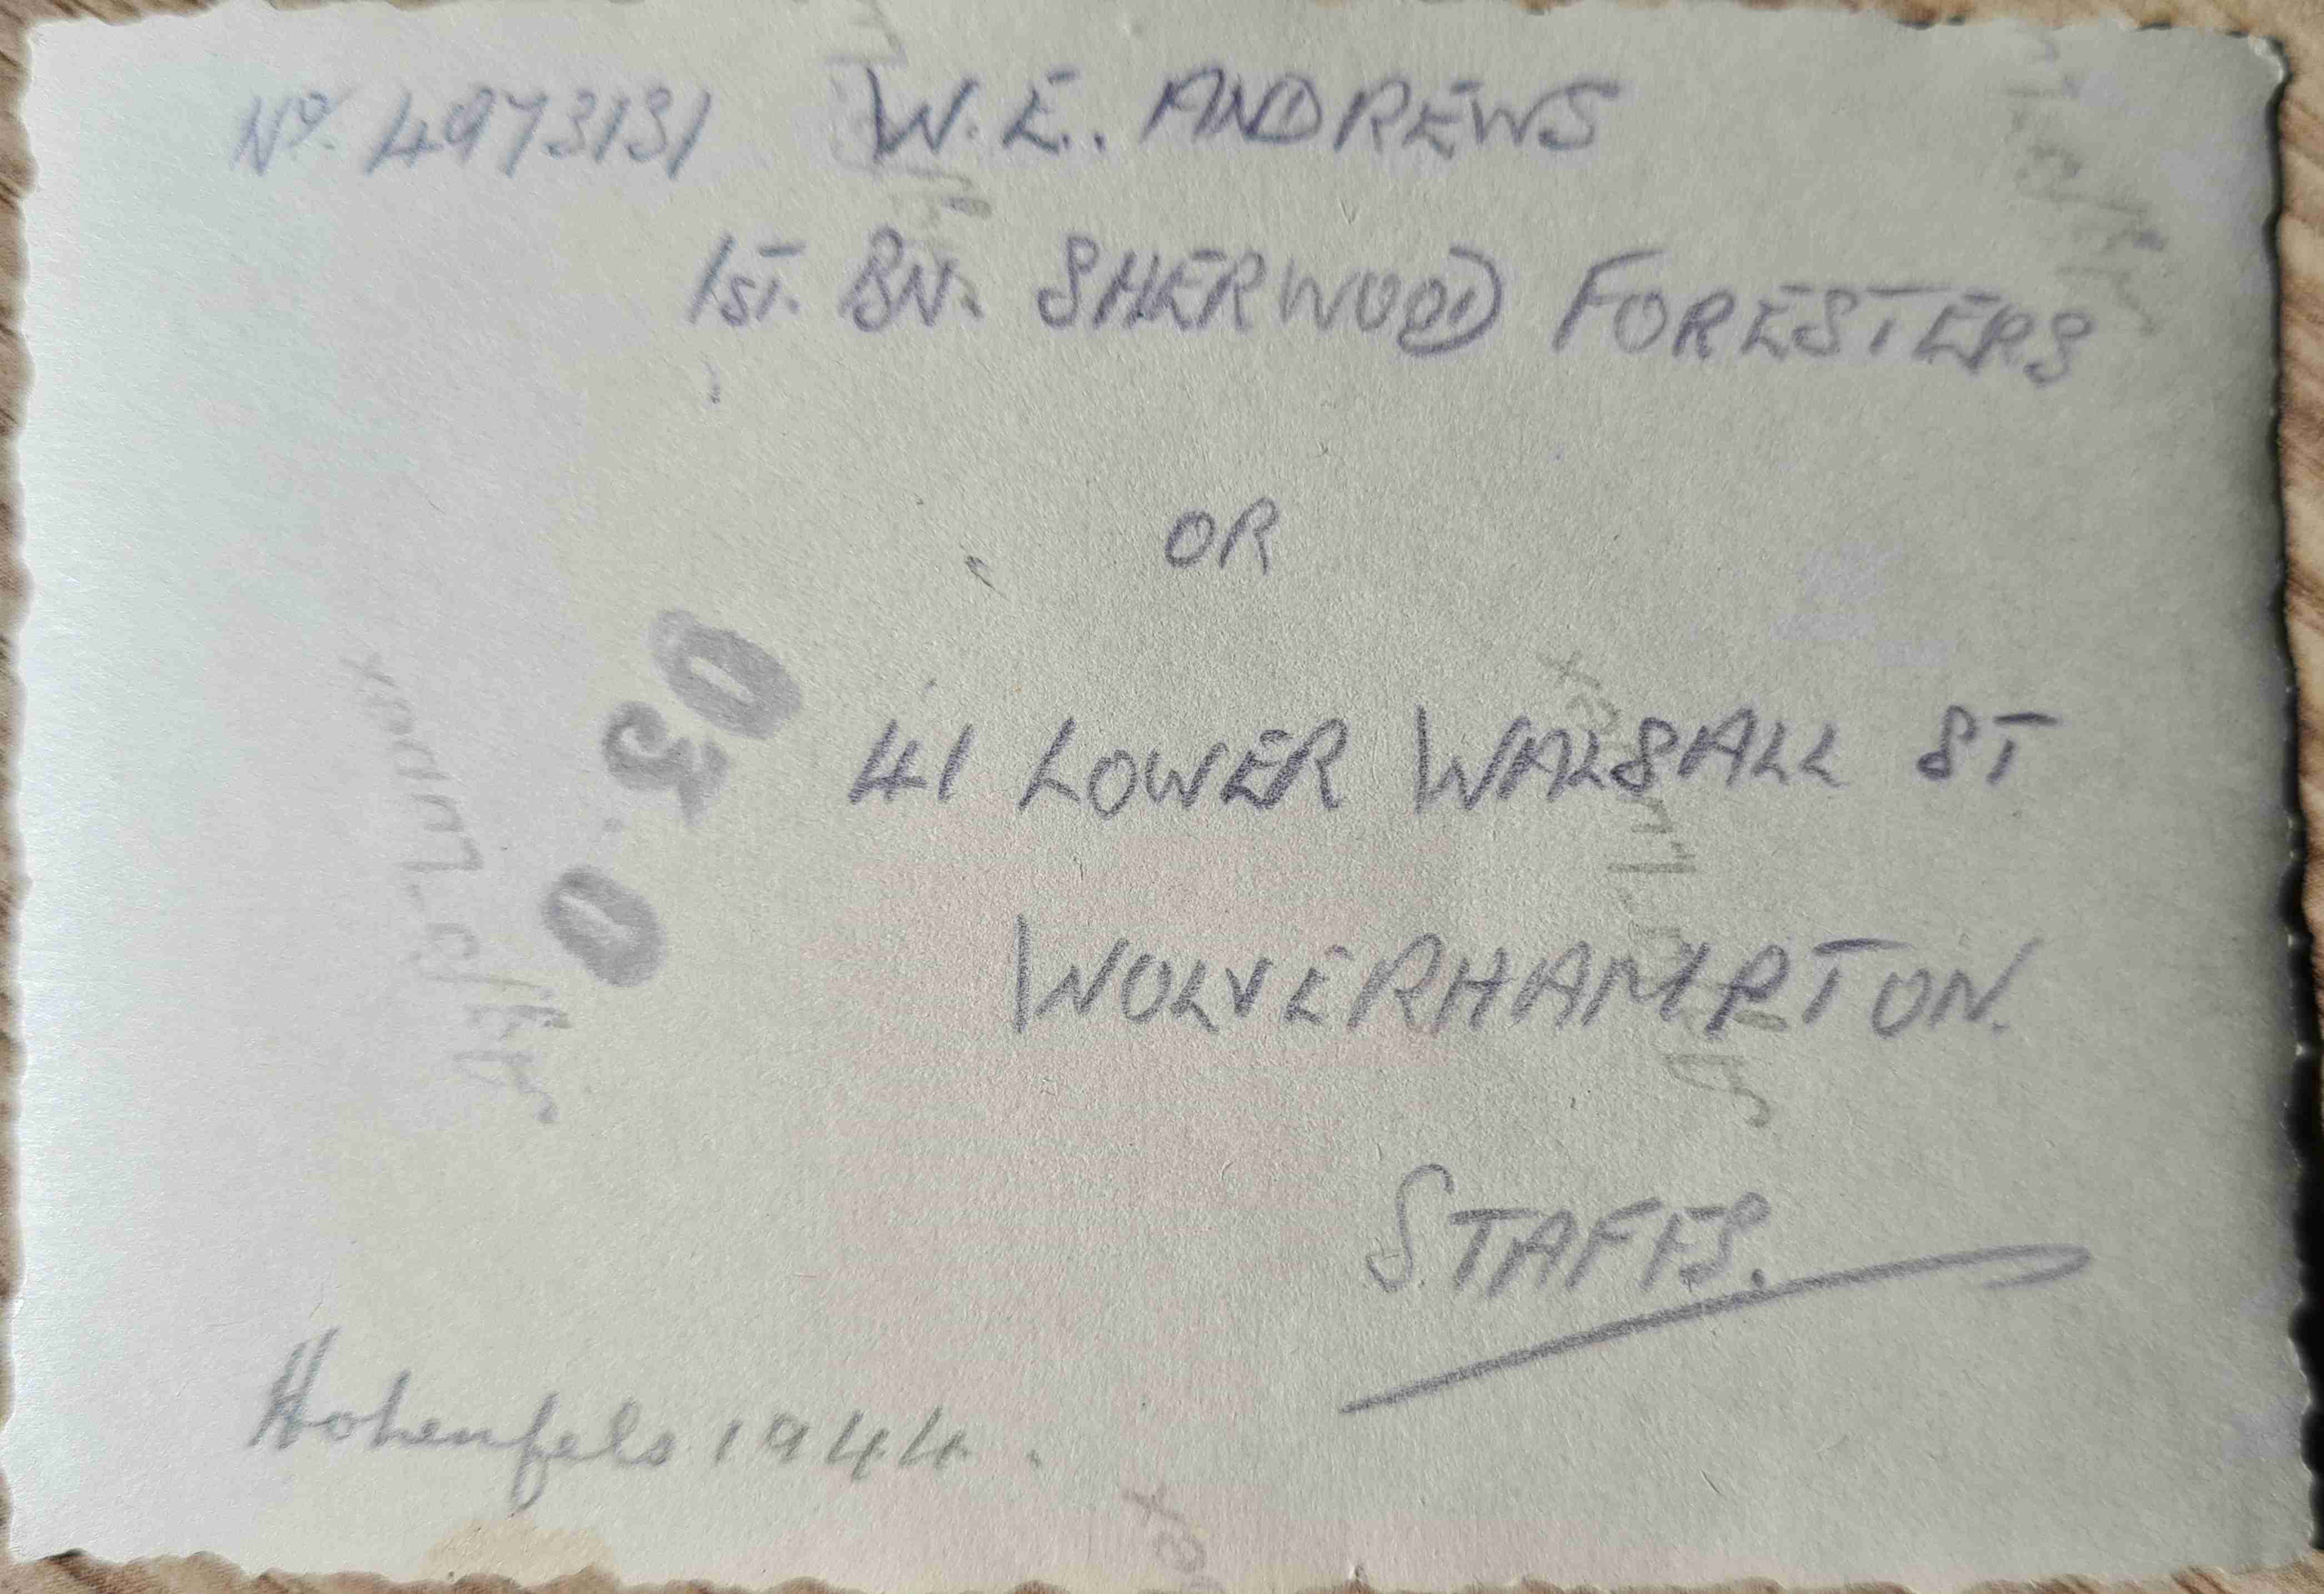 No. 4973131 W.E. ANDREWS
1ST. BN. SHERWOOD FORESTERS
OR
41 LOWER WALSALL ST
WOLVERHAMPTON.
STAFFS.
Hohenfels 1944.
Agfa-Lupex
Agfa-Lupex